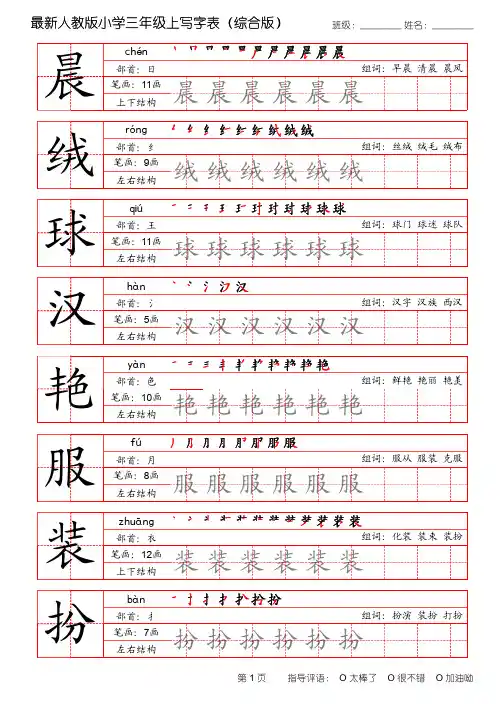 最新人教版小学三年级上写字表（综合版） 班级：________ 姓名：________
晨 chén
部首：日 组词：早晨 清晨 晨风
笔画：11画 晨 晨 晨 晨 晨 晨
上下结构
绒 róng
部首：纟 组词：丝绒 绒毛 绒布
笔画：9画 绒 绒 绒 绒 绒 绒
左右结构
球 qiú
部首：王 组词：球门 球迷 球队
笔画：11画 球 球 球 球 球 球
左右结构
汉 hàn
部首：氵 组词：汉字 汉族 西汉
笔画：5画 汉 汉 汉 汉 汉 汉
左右结构
艳 yàn
部首：色 组词：鲜艳 艳丽 艳美
笔画：10画 艳 艳 艳 艳 艳 艳
左右结构
服 fú
部首：月 组词：服从 服装 克服
笔画：8画 服 服 服 服 服 服
左右结构
装 zhuāng
部首：衣 组词：化装 装束 装扮
笔画：12画 装 装 装 装 装 装
上下结构
扮 bàn
部首：扌 组词：扮演 装扮 打扮
笔画：7画 扮 扮 扮 扮 扮 扮
左右结构
第 1 页 指导评语： O 太棒了 O 很不错 O 加油呦